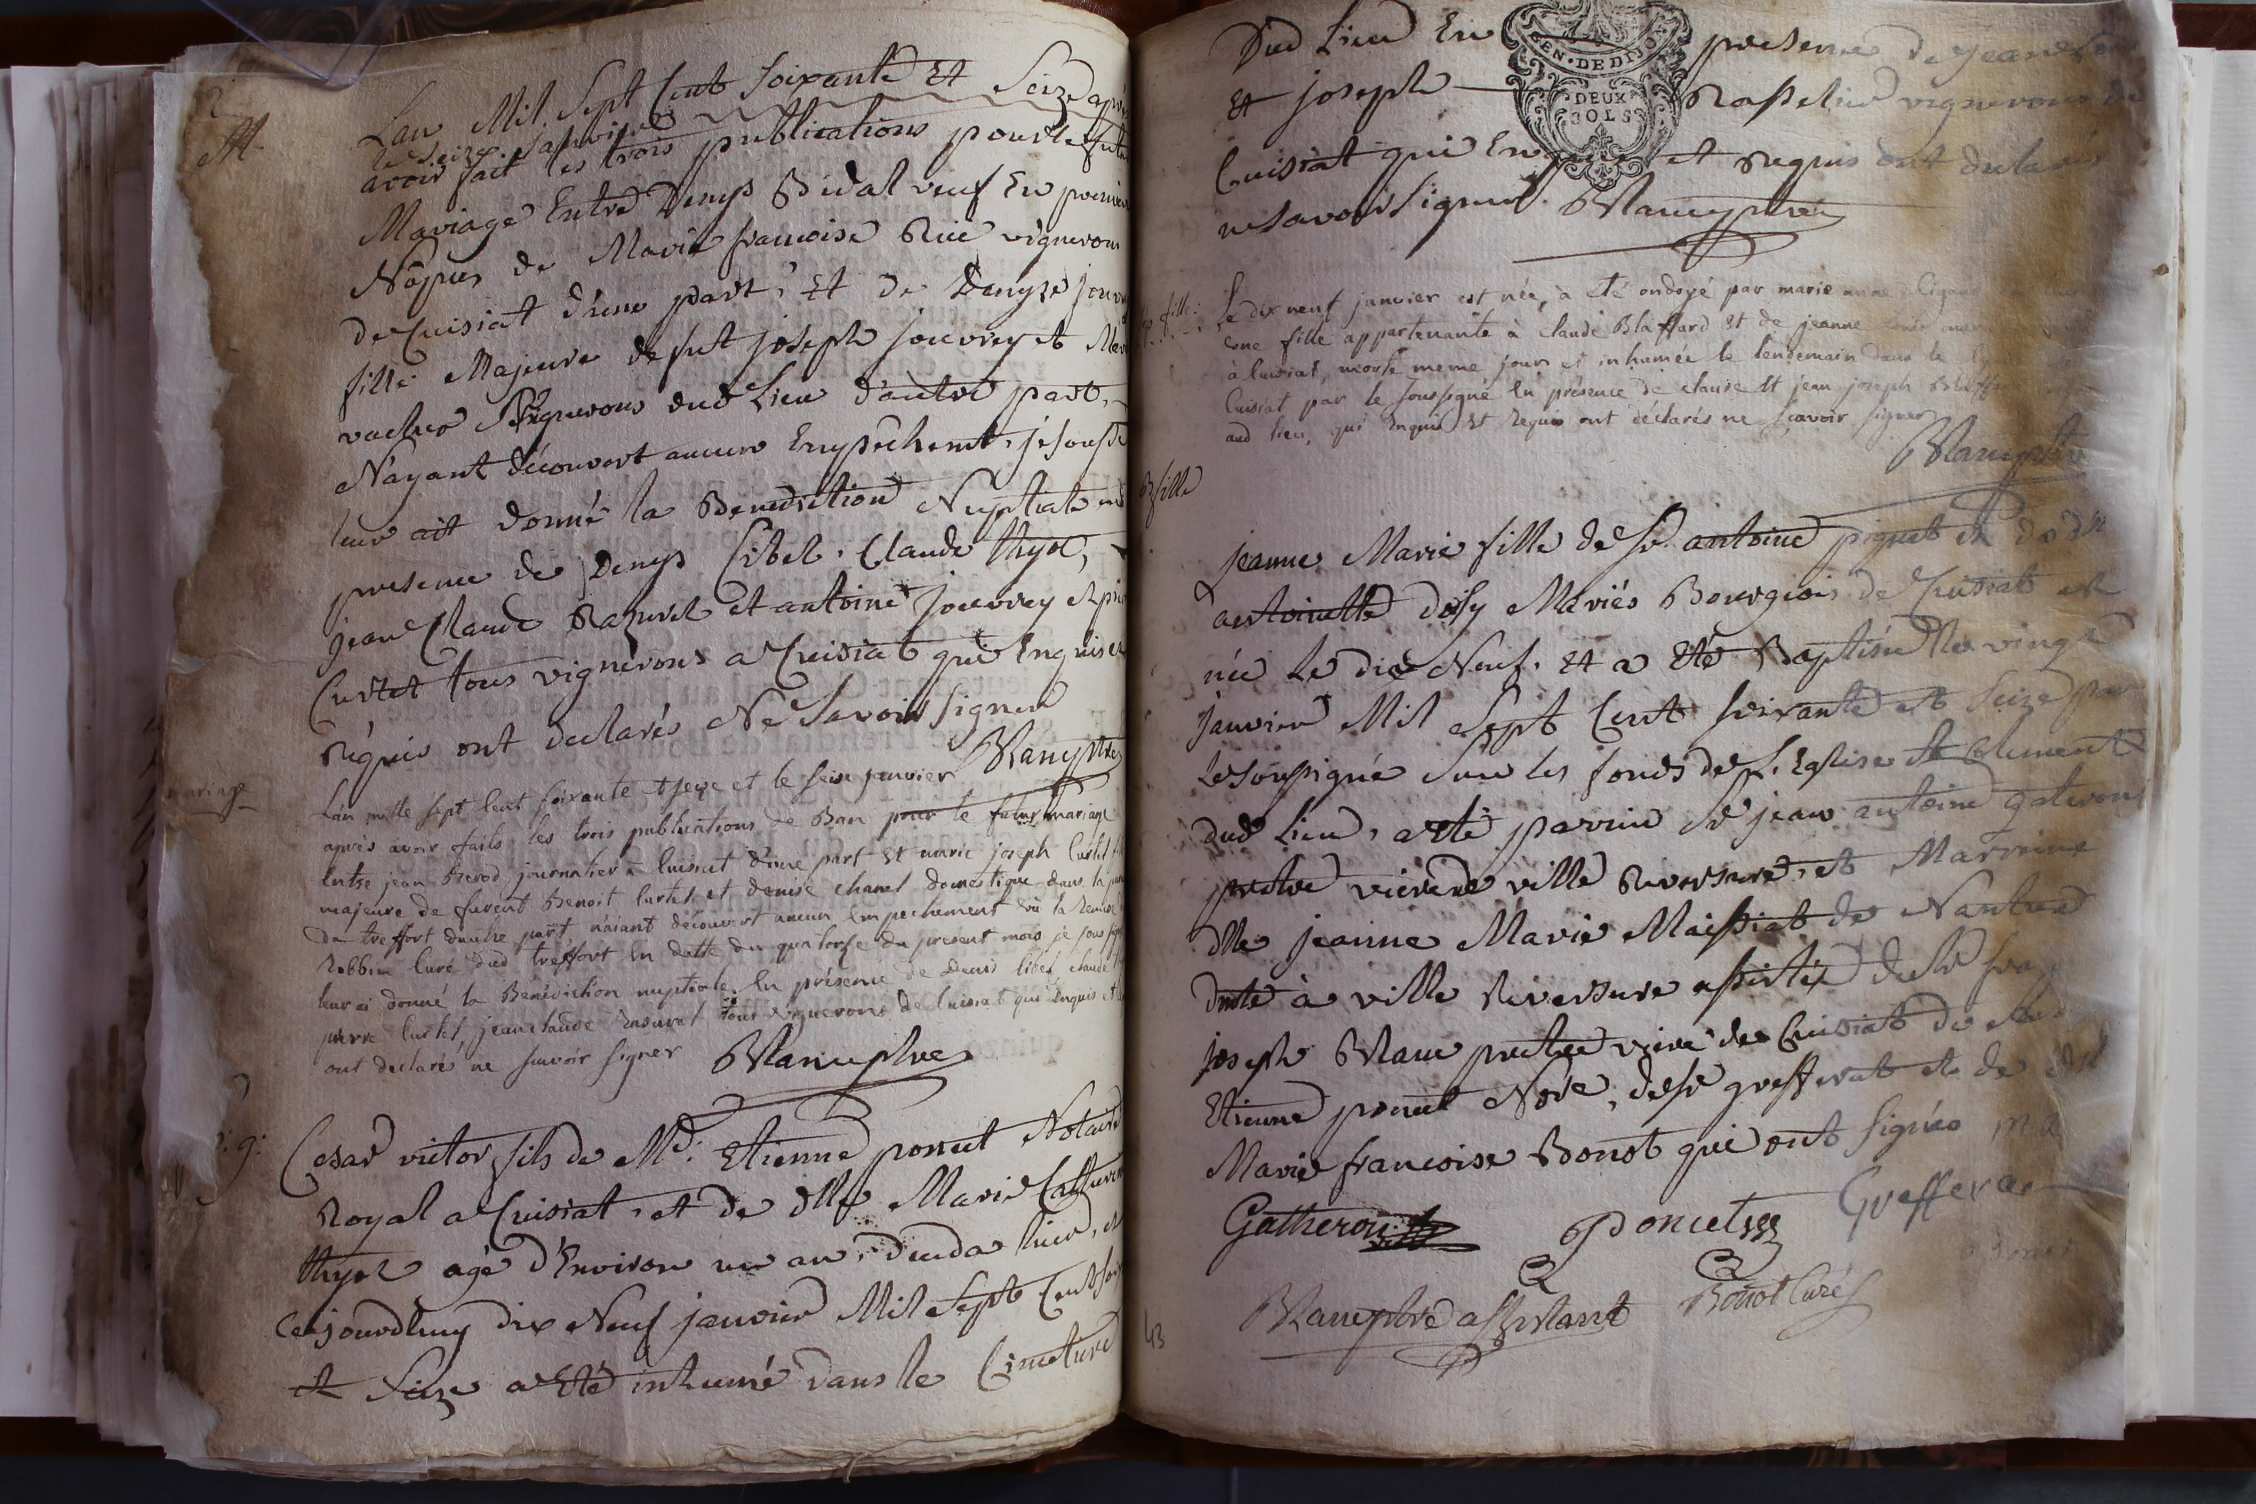 M.
Lan Mil Sept Cent Soixante Et Seize après
le Seize Janvier
avoir fait les trois publications pour le futur
Mariage Entre Denys Bidal veuf En premier
Nôpces de Marie francoise Rué vigneron
de Cuisiat d'une part, Et de Denyse jouvrey
fille Majeure de fut joseph jouvrey et Marie
vacher Vignerons dud Lieu d'autre part,
N'ayant découvert aucun Empêchement, je soussé
leur ait donné la Benediction Nuptiale en
presence de Denys Cibel, Claude thyol,
jean Claude Razurel et antoine jouvrey et pierre
Curtet tous vignerons a Cuisiat qui Enquis et
Réquis ont declarés Ne Savoir Signer
mariage
L'an mille sept Cent soixante et seize et le seize janvier
apres avoir faits les trois publications de Ban pour le futur mariage
Entre jean Berod journalier à Cuisiat d'une part et marie joseph Curtet fille
majeure de furent Benoit Curtet et denise chanel domestique dans la
de treffort d'autre part n'aiant découvert aucun Empechement vû la Remise
Robbin Curé dud treffort En datte du quatorze du present mois je soussigné
leur ai donné la Benediction nuptiale En présence de Denis Cibel, claude
pierre Curtet, jean claude Rasurel tous vignerons de Cuisiat qui Enquis et
ont declaré ne scavoir signer
Cesar victor fils de Me. Etienne poncet Notaire
Royal a Cuisiat, et de dlle Marie Catherine
thyol agé d'Environ un an, décedé hier, et
Cejourdhuy dix Neuf janvier Mil Sept Cent Soix
et Seize a Eté inhumé dans le Cimetiere
Dud Lieu En presence de jean
GEN. DE DIJON
DEUX
SOLS
Et joseph Rasselier vignerons de
Cuisiat qui Enquis et Requis ont declarés
ne savoir Signer.
fille
Le dix neuf janvier est née, à eté ondoyé par marie anne
une fille appartenante à Claude Blaffard et de jeanne
à Cuisiat, morte meme jour et inhumée le lendemain dans le
Cuisiat par le soussigné En présence de claude et jean joseph Blaffard
aud lieu, qui Enquis Et Requis ont déclarés ne scavoir signer
B fille
jeanne Marie fille de Sr. antoine piquet et de dlle
antoinette désy Mariés Bourgiois de Cuisiat est
née Le dix Neuf, Et a Eté Baptisée Le vingt
janvier Mil Sept Cent soixante et Seize par
le soussigné Sur les fonds de L'Eglise St Clement
dud Lieu, a Eté parrain Sr jean antoine gateron
pretre vicire de ville Reversure, et Marraine
dlle jeanne Marie Maissiat de Nantua
dmte à ville Reversure assistée de Sr
joseph Blanc pretre vicire de Cuisiat de
Etienne poncet Nore, de Sr grefferat et de dlle
Marie francoise Bonot qui ont signés
Gatheron
Poncet
Grefferat
Bonot Curé
43